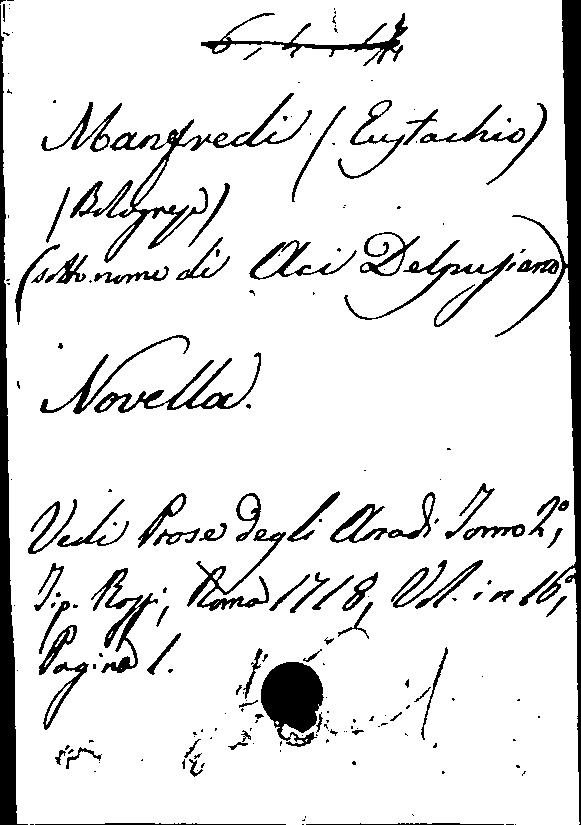 Manfredi (Eustachio)
(Bolognese)
(sotto nome di Aci Delpusiano)
Novella.
Vedi Prose degli Arcadi Tomo 2º,
Tip. Rossi, Roma 1718, Vol. in 16º,
Pagina 1.